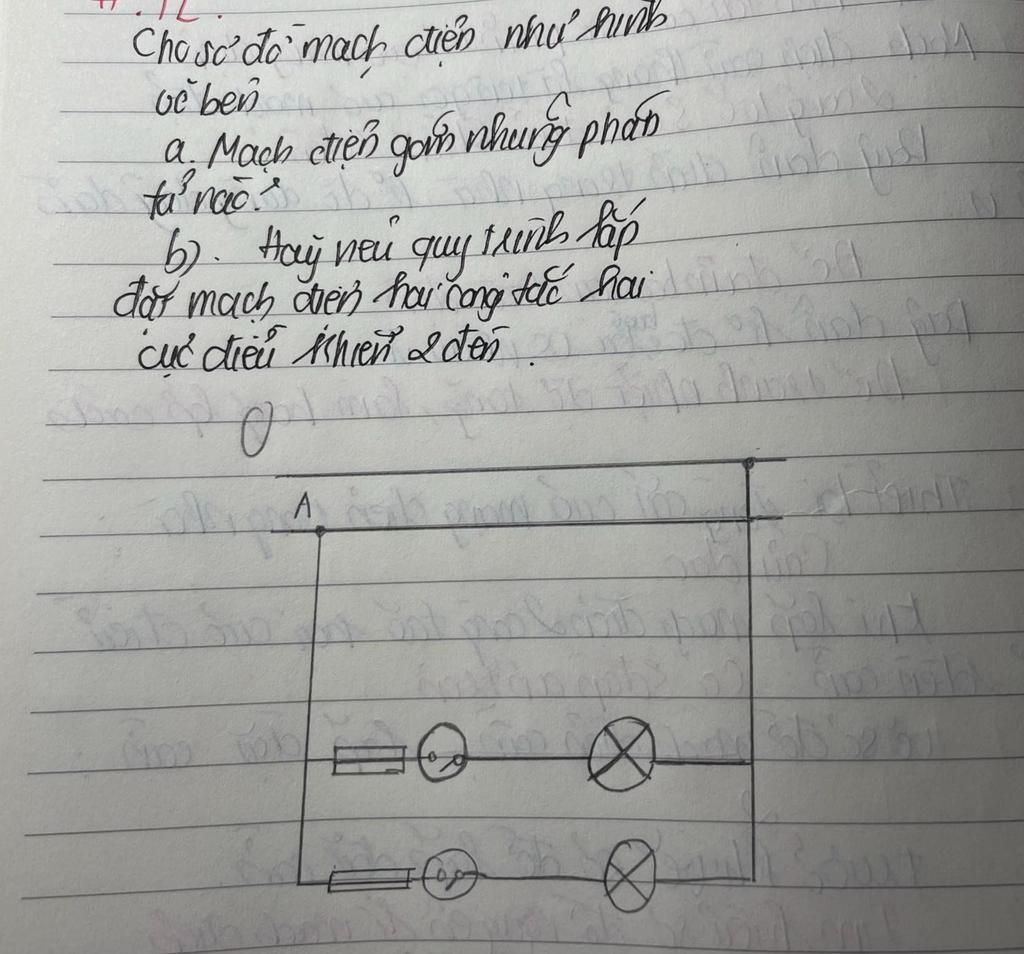 Cho sơ đồ mạch điện như hình
vẽ bên
a. Mạch điện gồm những phần
tử nào?
b). Hãy nêu quy trình lắp
đặt mạch điện hai công tắc hai
cực điều khiển 2 đèn.
O
A